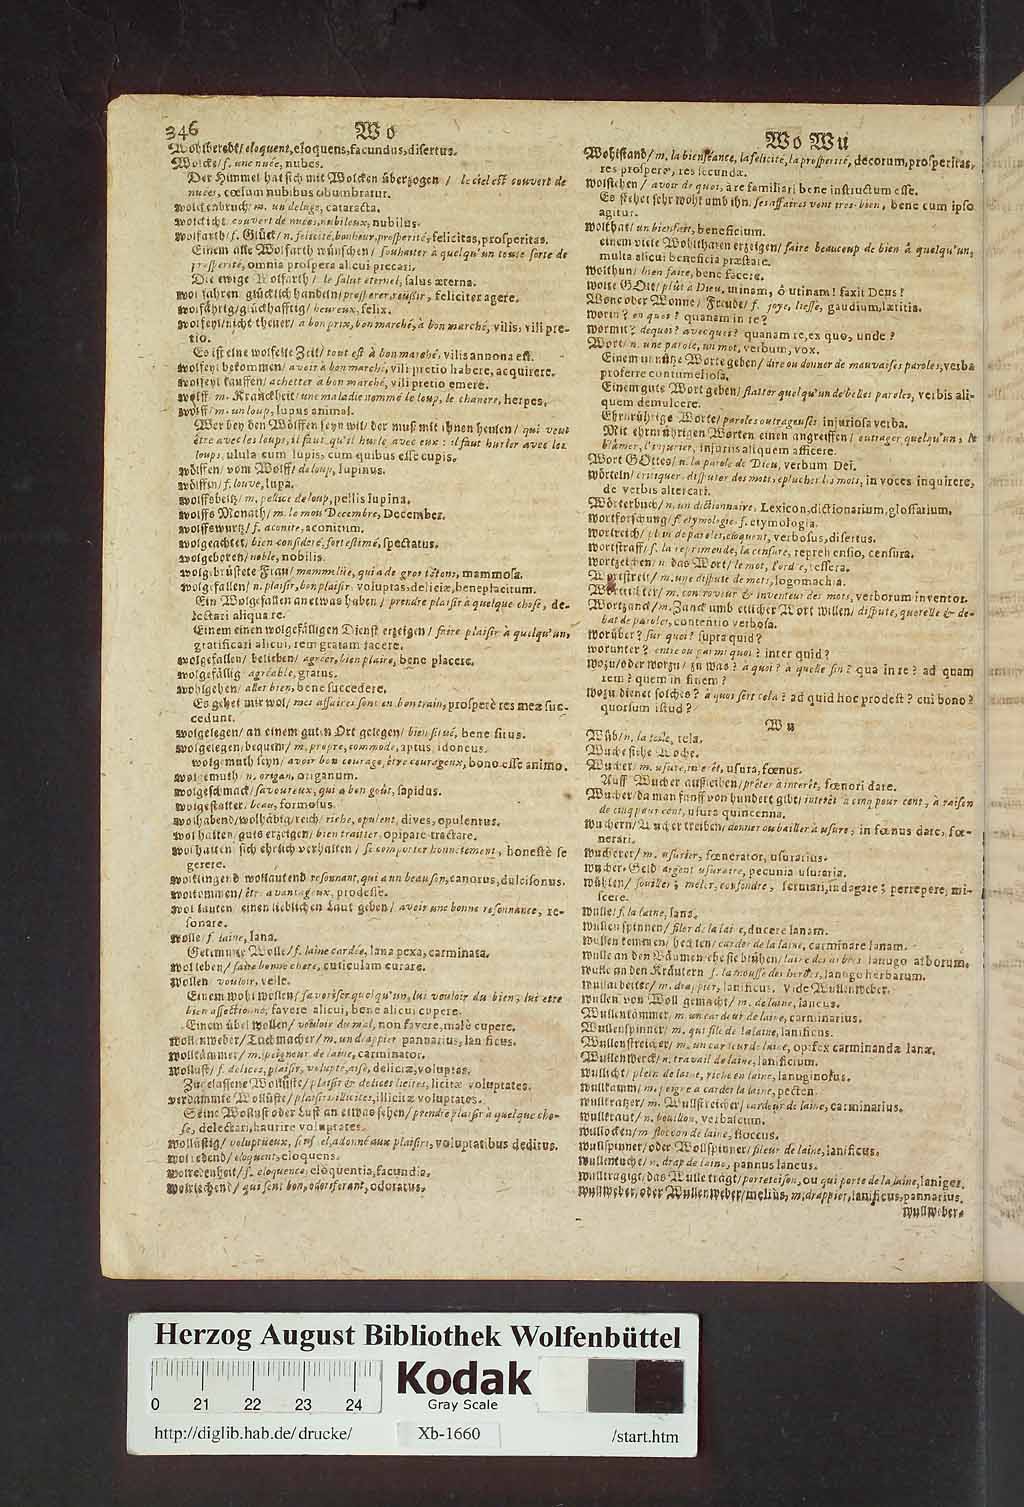 346
Wo
Wohlberedt/ eloquent, eloquens, facundus, disertus.
Wolcke/ f. une nuée, nubes.
Der Himmel hat sich mit Wolcken überzogen / le ciel est couvert de
nuées, cœlum nubibus obumbratur.
Wolckenbruch/ m. un deluge, cataracta.
Wolckicht couvert de nuées, nubileux, nubilus.
Wolfarth/ f. Glück/ n. felicité, bonheur, prosperité, felicitas, prosperitas.
Einem alle Wolfarth wünschen/ souhaiter à quelqu'un toute sorte de
prosperité, omnia prospera alicui precari.
Die ewige Wolfarth/ le salut eternel, salus æterna.
Wol fahren glücklich handeln/ prosperer, reüssir, feliciter agere.
Wolfährig/ glückhafftig/ heureux, felix.
Wolfeyl/ nicht theuer/ a bon prix, bon marché, à bon marché, vilis, vili pre-
tio.
Es ist eine wolfeile Zeit/ tout est à bon marché, vilis annona est.
Wolfeyl bekommen/ avoir à bon marché, vili pretio habere, acquirere.
Wolfeyl kauffen/ achetter a bon marché, vili pretio emere.
Wolff m. Kranckheit/ une maladie nommé le loup, le chancre, herpes,
Wolff/ m. un loup, lupus animal.
Wer bey den Wölffen seyn wil/ der muß mit ihnen heulen/ qui veut
être avec les loups, il faut qu'il hurle avec eux : il faut hurler avec les
loups, ulula cum lupis, cum quibus esse cupis.
Wölffen/ vom Wolff/ de loup, lupinus.
Wölffin/ f. louve, lupa.
Wolffsbeltz/ m. pelice de loup, pellis lupina.
Wolffs Monath/ m. le mois Decembre, December.
Wolffswurtz/ f. aconite, aconitum.
Wolgeachtet/ bien consideré, fort estimé, spectatus.
Wolgeboren/ noble, nobilis.
Wolgebrüstete Frau/ mammeluë, qui a de gros tétons, mammosa.
Wolgefallen/ n. plaisir, bon plaisir voluptas, deliciæ, beneplacitum.
Ein Wolgefallen an etwas haben/ prendre plaisir à quelque chose, de-
lectari aliqua re.
Einem einen wolgefälligen Dienst erzeigen/ faire plaisir à quelqu'un,
gratificari alicui, rem gratam facere.
Wolgefallen/ belieben/ agréer, bien plaire, bene placere.
Wolgefällig agréable, gratus.
Wohlgehen/ aller bien, bene succedere.
Es gehet mir wol/ mes affaires sont en bon train, prosperè res meæ suc-
cedunt.
Wolgelegen/ an einem guten Ort gelegen/ bien situé, bene situs.
Wolgelegen/ bequem/ m. propre, commode, aptus, idoneus.
Wolgemuth seyn/ avoir bon courage, être courageux, bono esse animo.
Wolgemuth n. origan, origanum.
Wolgeschmackt/ savoureux, qui a bon goût, sapidus.
Wolgestaltet/ beau, formosus.
Wolhabend/ wolhäbig/ reich/ riche, opulent, dives, opulentus.
Wol halten/ guts erzeigen/ bien traitter, opipare tractare.
Wol halten sich ehrlich verhalten / se comporter honnêtement, honestè se
gerere.
Wolklingend wollautend resonnant, qui a un beau son, canorus, dulcisonus.
Wolkommen/ être avantageux, prodesse.
Wol lauten einen lieblichen Laut geben/ avoir une bonne resonnance, re-
sonare.
Wolle f. laine, lana.
Gekemmte Wolle/ f. laine cardée, lana pexa, carminata.
Wol leben/ faire bonne chere, cuticulam curare.
Wollen vouloir, velle.
Einem wohl wollen/ favoriser quelqu'un, lui vouloir du bien, lui etre
bien affectionné, favere alicui, bene alicui cupere.
Einem übel wollen/ vouloir du mal, non favere, malè cupere.
Wollenweber/ Tuchmacher/ m. un drappier pannarius, lanificus.
Wollkämmer/ m. peigneur de laine, carminator.
Wollust/ f. delices, plaisir, volupté, aise, deliciæ, voluptas.
Zugelassene Wollüste/ plaisir & delices licites, licitæ voluptates.
Verdammte Wollüste/ plaisirs illicites, illicitæ voluptates.
Seine Wollust oder Lust an etwas sehen/ prendre plaisir à quelque cho-
se, delectari, haurire voluptates.
Wollüstig/ voluptueux, sensuel, adonné aux plaisirs, voluptatibus deditus.
Wolredend/ eloquent, eloquens.
Wolredenheit/ f. eloquence, eloquentia, facundia.
Wolriechend/ qui sent bon, odoriferant, odoratus.
Wo Wu
Wohlstand/ m. la bienséance, la felicité, la prosperité, decorum, prosperitas,
res prosperæ, res secundæ.
Wolstehen/ avoir de quoi, à re familiari bene instructum esse.
Es stehet sehr wohl umb ihn/ ses affaires vont tres-bien, bene cum ipso
agitur.
Wolthat/ un bienfait, beneficium.
einem viele Wohlthaten erzeigen/ faire beaucoup de bien à quelqu'un,
multa alicui beneficia præstare.
Wolthun/ bien faire, bene facere.
Wolte GOtt/ plût à Dieu, utinam, ô utinam! faxit Deus!
Wone oder Wonne/ Freude/ f. joye, liesse, gaudium, lætitia.
Worin? en quoi? quanam in re?
Wormit? dequoi? avec quoi? quanam re, ex quo, unde?
Wort/ n. une parole, un mot, verbum, vox.
Einem unnütze Worte geben/ dire ou donner de mauvaises paroles, verba
proferre contumeliosa.
Einem gute Wort geben/ flatter quelqu'un de belles paroles, verbis ali-
quem demulcere.
Ehrnrührige Worte/ paroles outrageuses injuriosa verba.
Mit ehrnrührigen Worten einen angreiffen/ outrager quelqu'un, le
blâmer, l'injurier, injuriis aliquem afficere.
Wort GOttes/ n. la parole de Dieu, verbum Dei.
Wörteln/ critiquer, disputer des mots, eplucher les mots, in voces inquirere,
de verbis altercari.
Wörterbuch/ n. un dictionnaire, Lexicon, dictionarium, glossarium.
Wortforschung/ f. etymologie, f. etymologia.
Wortreich/ plein de paroles, eloquent, verbosus, disertus.
Wortstraff/ f. la reprimende, la censure, reprehensio, censura.
Wortzeichen/ n das Wort/ le mot, l'ordre, tessera.
Wortstreit/ m. une dispute de mots, logomachia.
m. controuveur & inventeur des mots, verborum inventor.
Wortzanck/ m. Zanck umb etlicher Wort willen/ dispute, querelle & de-
bat de paroles, contentio verbosa.
Worüber? sur quoi? supra quid?
Worunter? entre ou parmi quoi? inter quid?
Wozu/ oder worzu/ zu was? à quoi? à quelle fin? qua in re? ad quam
rem? quem in finem?
Wozu dienet solches? à quoi sert cela? ad quid hoc prodest? cui bono?
quorsum istud?
Wu
Wüb/ n. la toile, tela.
Wuche siehe Woche.
Wucher/ m. usure, interêt, usura, fœnus.
Auff Wucher außleihen/ prêter à interêt, fœnori dare.
Wucher/ da man fünff von hundert gibt/ interêt à cinq pour cent, à raison
de cinq pour cent, usura quincenna.
Wuchern/ Wucher treiben/ donner ou bailler à usure, in fœnus dare, fœ-
nerari.
Wucherer/ m. usurier, fœnerator, usurarius.
Wucher-Geld argent usuraire, pecunia usuraria.
Wühlen/ fouiller; meler, confondre, scrutari, indagare; perrepere, mi-
scere.
Wulle/ f. la laine, lana.
Wullen spinnen/ filer de la laine, ducere lanam.
Wullen kemmen/ hecheln/ carder de la laine, carminare lanam.
Wulle an den Bäumen ehe sie blühen/ laine des arbres lanugo arborum.
Wulle an den Kräutern f. la mousse des herbes, lanugo herbarum.
Wullarbeiter/ m. drappier, lanificus. Vide Wullenweber.
Wullen von Woll gemacht/ m. de laine, laneus.
Wullenkämmer m. un cardeur de laine, carminarius.
Wullenspinner/ m. qui file de la laine, lanificus.
Wullenstreicher/ m. un cardeur de laine, opifex carminandæ lanæ.
Wullenwerck/ n. travail de laine, lanificium.
Wullicht/ plein de laine, riche en laine, lanuginosus.
Wullkamm/ m. peigne a carder la laine, pecten.
Wullkratzer/ m. Wullstreicher/ cardeur de laine, carminarius.
Wullkraut/ n. bouillon, verbascum.
Wullocken/ m floccon de laine, floccus.
Wullspinner/ oder Wollspinner/ fileur de laine, lanificus.
Wullentuche/ n. drap de laine, pannus laneus.
Wullträgigt/ das Wulle trägt/ portetoison, ou qui porte de la laine, laniger.
Wullweber, oder Wullenweber/ melius, m, drappier, lanificus, pannarius.
Wullweber.
Herzog August Bibliothek Wolfenbüttel
Kodak
Gray Scale
0 21 22 23 24
http://diglib.hab.de/drucke/ Xb-1660 /start.htm